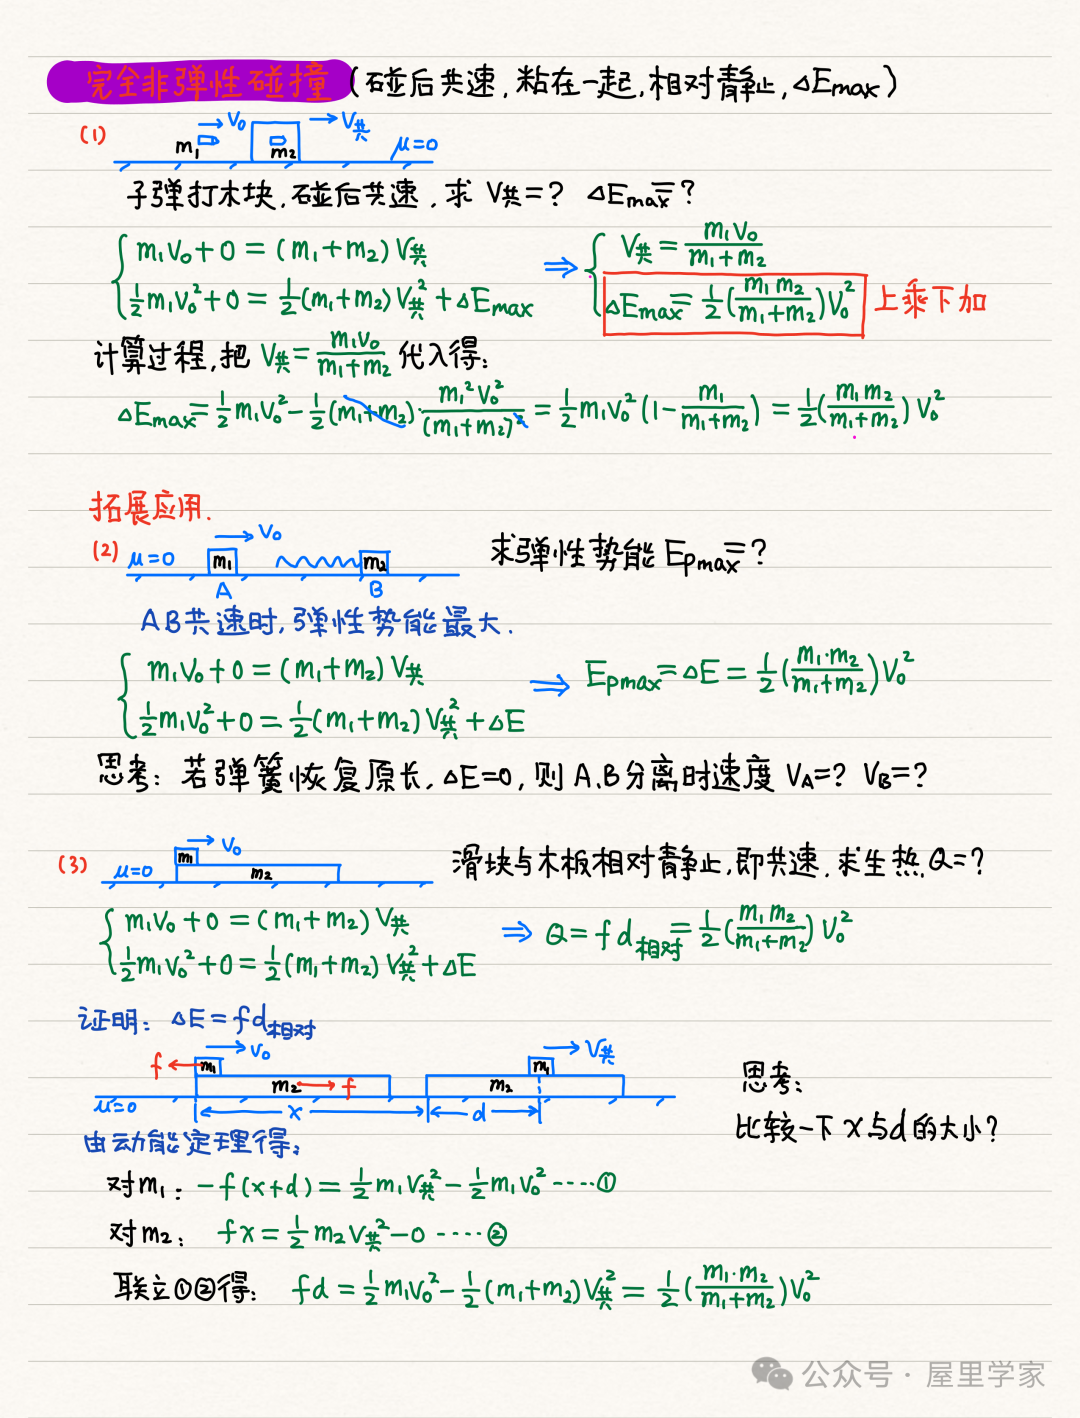 完全非弹性碰撞(碰后共速,粘在一起,相对静止,△Emax)
(1) m₁ V₀ m₂ V共 μ=0
子弹打木块,碰后共速,求 V共=? △Emax=?
{ m₁V₀+0=(m₁+m₂)V共 ⇒ { V共=m₁V₀/(m₁+m₂)
½m₁V₀²+0=½(m₁+m₂)V共²+△Emax △Emax=½(m₁m₂/(m₁+m₂))V₀² 上乘下加
计算过程,把 V共=m₁V₀/(m₁+m₂) 代入得:
△Emax=½m₁V₀²-½(m₁+m₂)·m₁²V₀²/(m₁+m₂)²=½m₁V₀²(1-m₁/(m₁+m₂))=½(m₁m₂/(m₁+m₂))V₀²
拓展应用.
(2) μ=0 m₁ V₀ m₂ A B 求弹性势能 Epmax=?
AB共速时,弹性势能最大.
{ m₁V₀+0=(m₁+m₂)V共 ⇒ Epmax=△E=½(m₁·m₂/(m₁+m₂))V₀²
½m₁V₀²+0=½(m₁+m₂)V共²+△E
思考:若弹簧恢复原长,△E=0,则A.B分离时速度 VA=? VB=?
(3) μ=0 m₁ V₀ m₂ 滑块与木板相对静止,即共速.求生热Q=?
{ m₁V₀+0=(m₁+m₂)V共 ⇒ Q=fd相对=½(m₁m₂/(m₁+m₂))V₀²
½m₁V₀²+0=½(m₁+m₂)V共²+△E
证明:△E=fd相对
f m₁ V₀ m₂ f μ=0 x m₂ d m₁ V共
思考:
比较一下x与d的大小?
由动能定理得:
对m₁:-f(x+d)=½m₁V共²-½m₁V₀²····①
对m₂: fx=½m₂V共²-0····②
联立①②得: fd=½m₁V₀²-½(m₁+m₂)V共²=½(m₁·m₂/(m₁+m₂))V₀²
公众号·屋里学家